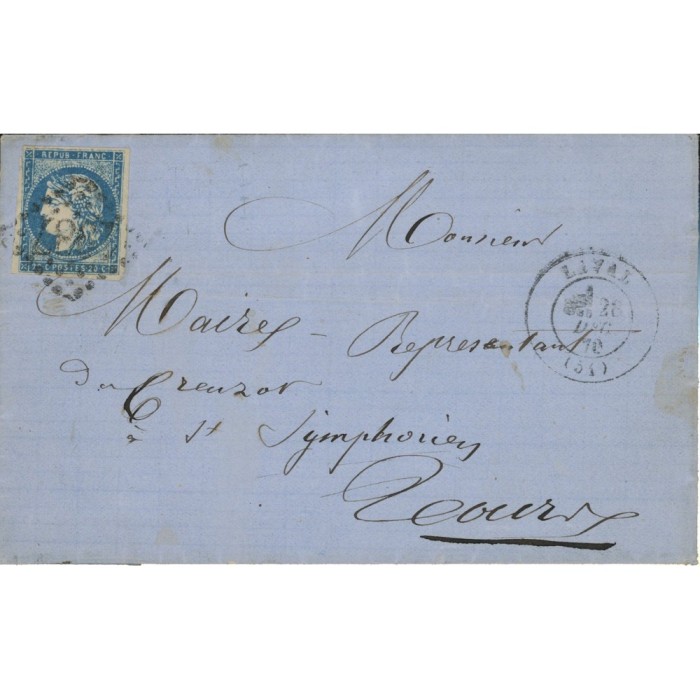 REPUB. FRANC.
20 C. POSTES 20 C.
Monsieur
LAVAL
28
DEC.
70
(51)
Maires - Représentant
du Creuzot
à St Symphorien
Tours